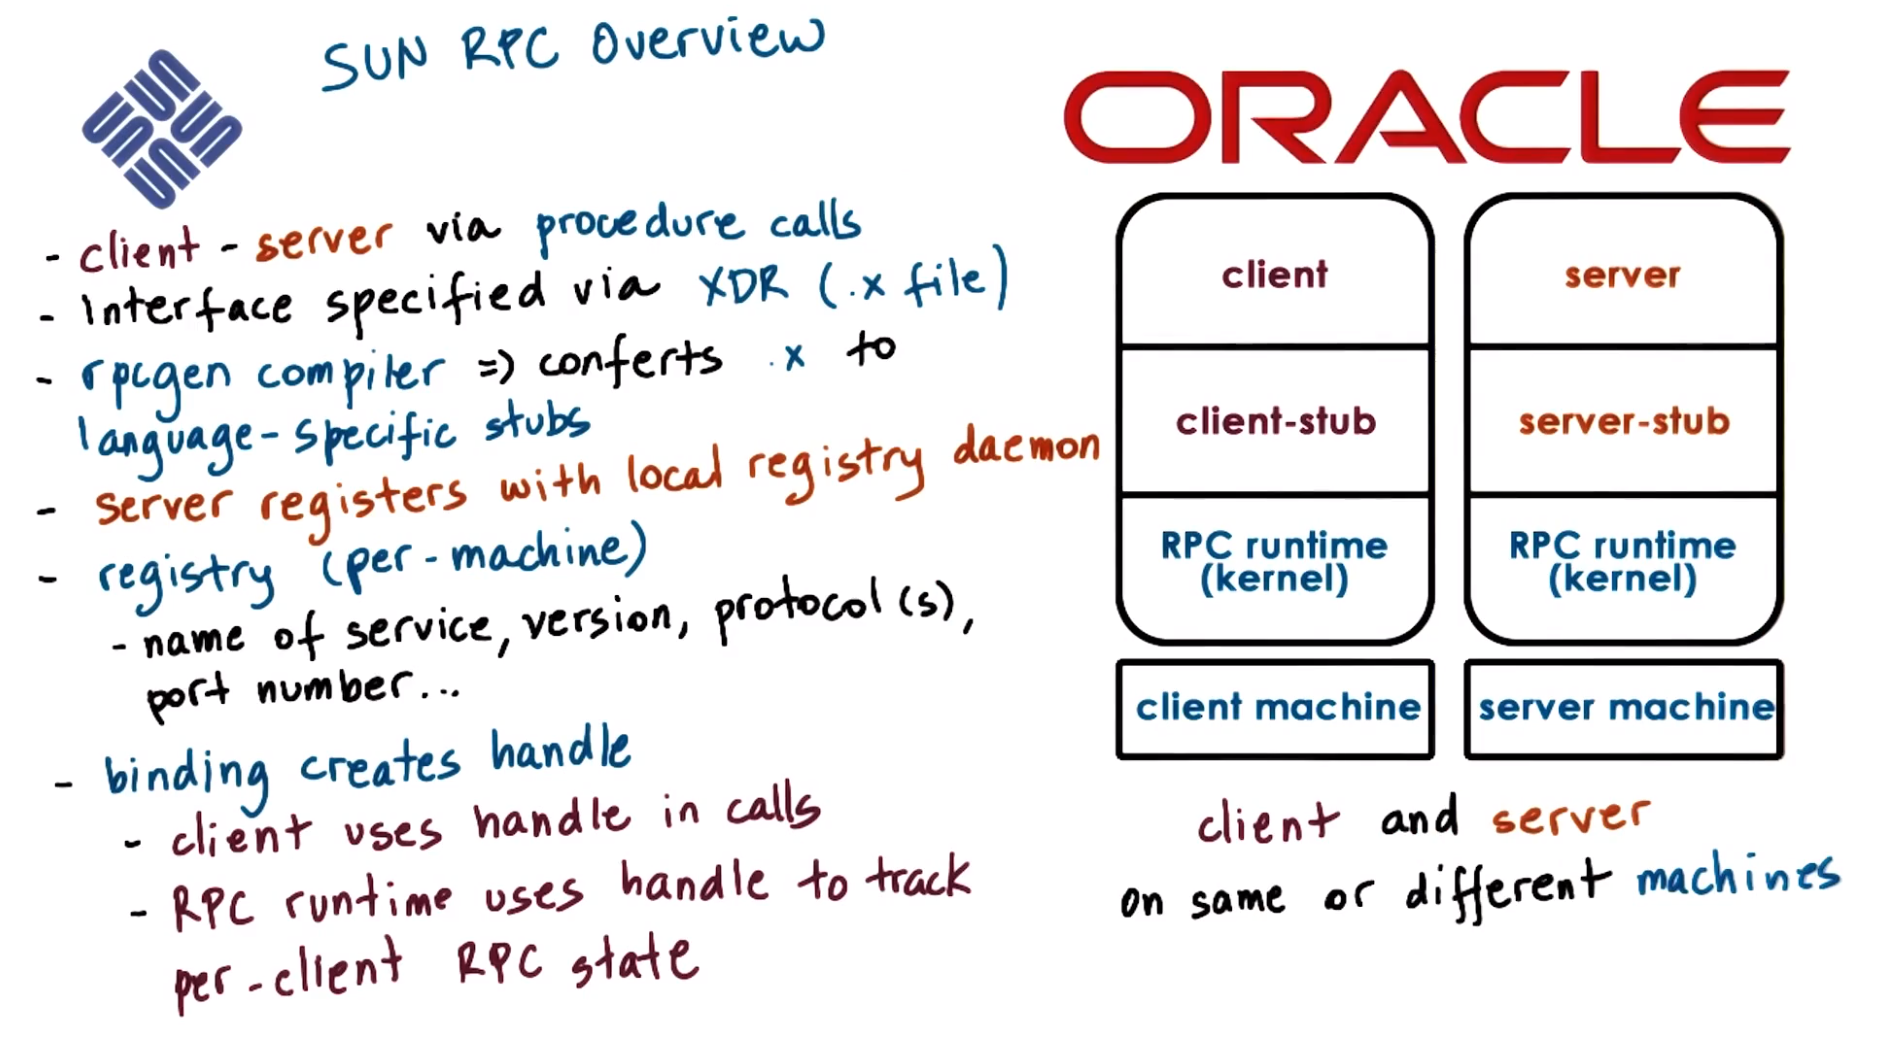 SUN RPC Overview
SUN SUN SUN SUN
ORACLE
- client - server via procedure calls
- Interface specified via XDR (.x file)
- rpcgen compiler => conferts .x to
language-specific stubs
- server registers with local registry daemon
- registry (per-machine)
- name of service, version, protocol(s),
port number...
- binding creates handle
- client uses handle in calls
- RPC runtime uses handle to track
per-client RPC state
client
client-stub
RPC runtime
(kernel)
client machine
server
server-stub
RPC runtime
(kernel)
server machine
client and server
on same or different machines